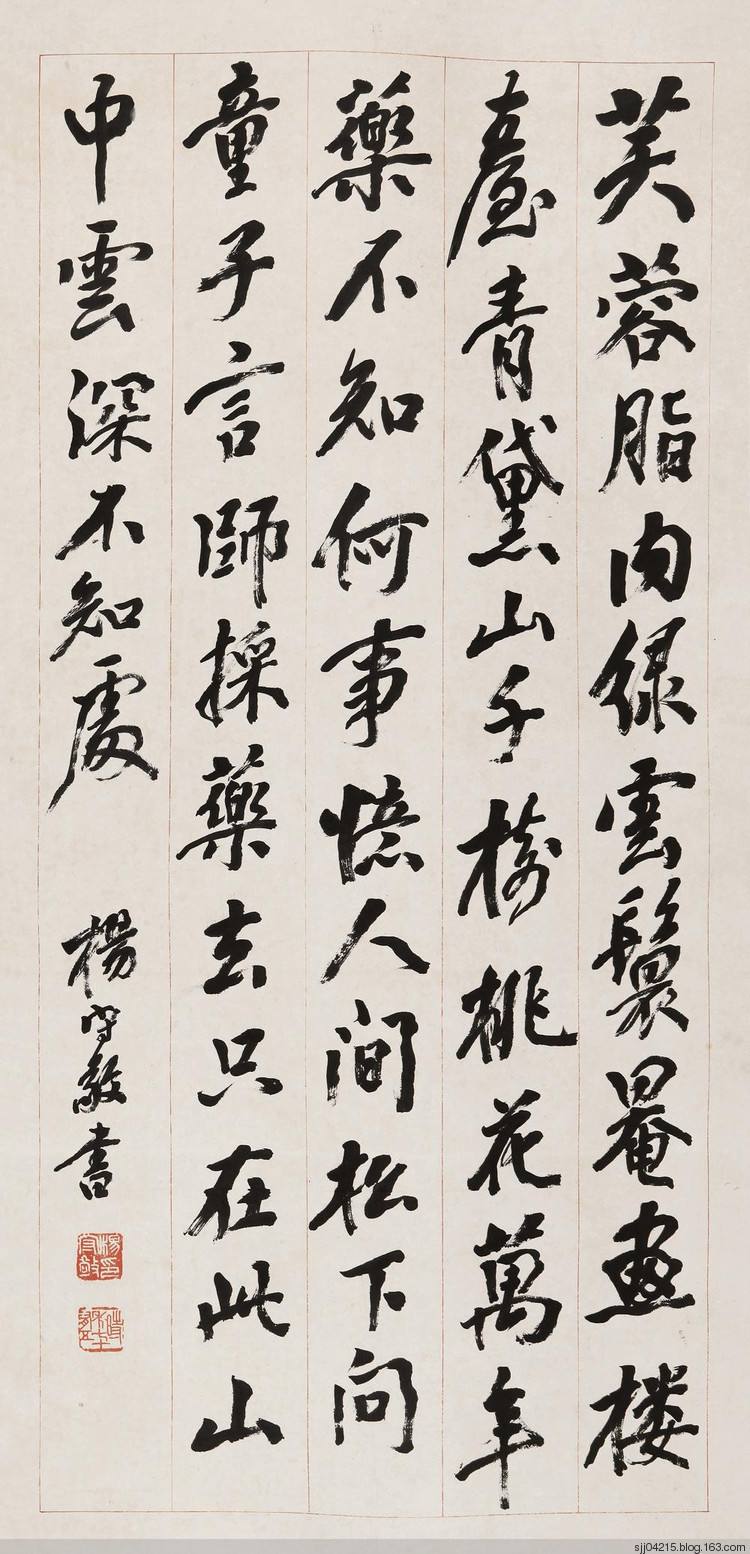 芙蓉脂肉綠雲鬟罨畫樓
臺青黛山千樹桃花萬年
藥不知何事憶人間松下問
童子言師採藥去只在此山
中雲深不知處
楊守敬書
楊印守敬
sjj04215.blog.163.com